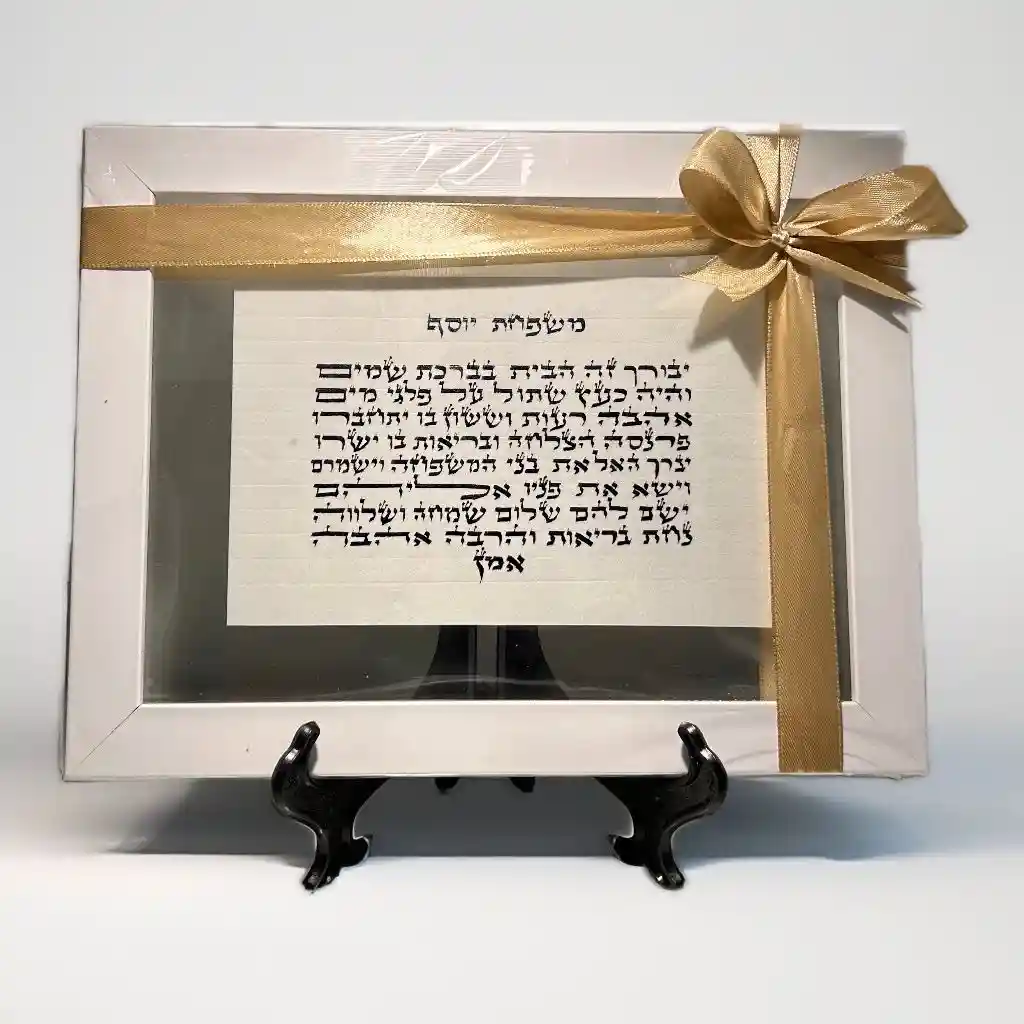 משפחת יוסף
יבורך זה הבית בברכת שמים
והיה כעץ שתול על פלגי מים
אהבה רעות וששון בו יתחברו
פרנסה הצלחה ובריאות בו ישרו
יברך האל את בני המשפחה וישמרם
וישא את פניו אליהם
ישם להם שלום שמחה ושלווה
נחת בריאות והרבה אהבה
אמן